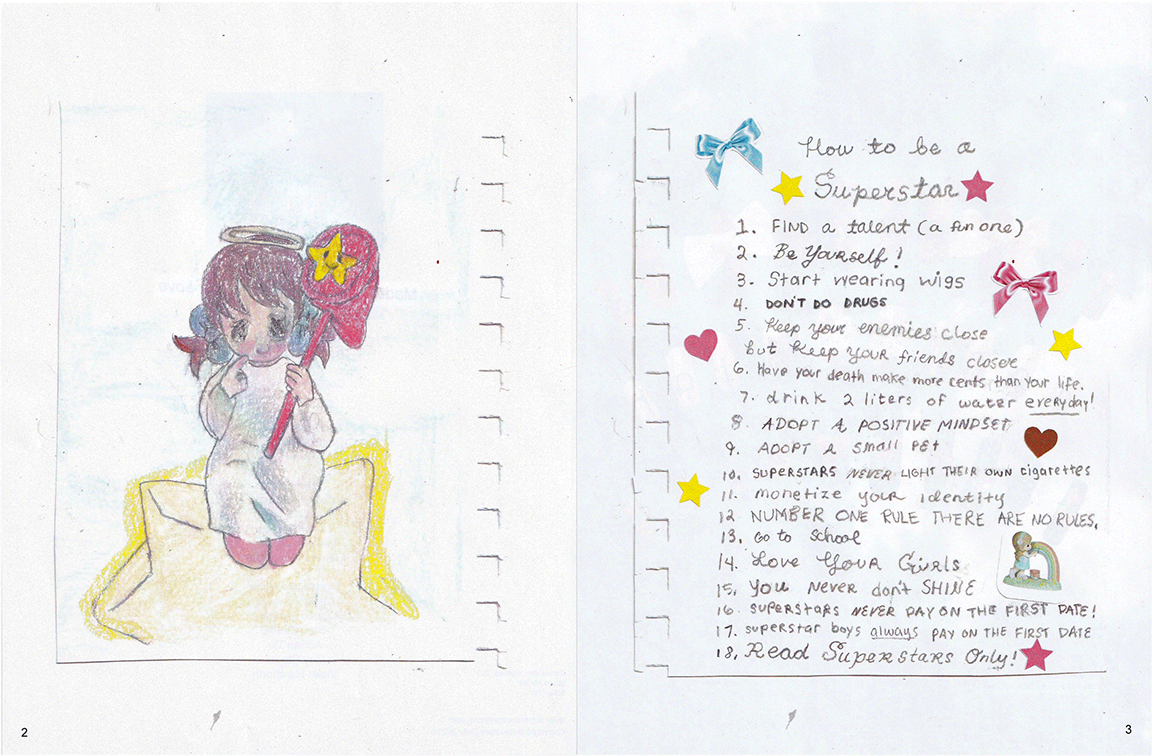 How to be a
Superstar
1. FIND a talent (a fun one)
2. Be YourSelf!
3. Start wearing wigs
4. DON'T DO DRUGS
5. Keep your enemies close
but keep YOUR friends closer
6. Have your death make more cents than your life.
7. drink 2 liters of water everyday!
8. ADOPT A POSITIVE MINDSET
9. ADOPT A small PET
10. SUPERSTARS NEVER LIGHT THEIR OWN cigarettes
11. monetize your identity
12 NUMBER ONE RULE THERE ARE NO RULES.
13. Go to School
14. Love Your Girls
15. YOU NEVER don't SHINE
16. SUPERSTARS NEVER PAY ON THE FIRST DATE!
17. superstar boys always PAY ON THE FIRST DATE
18. Read Superstars Only!
2
3